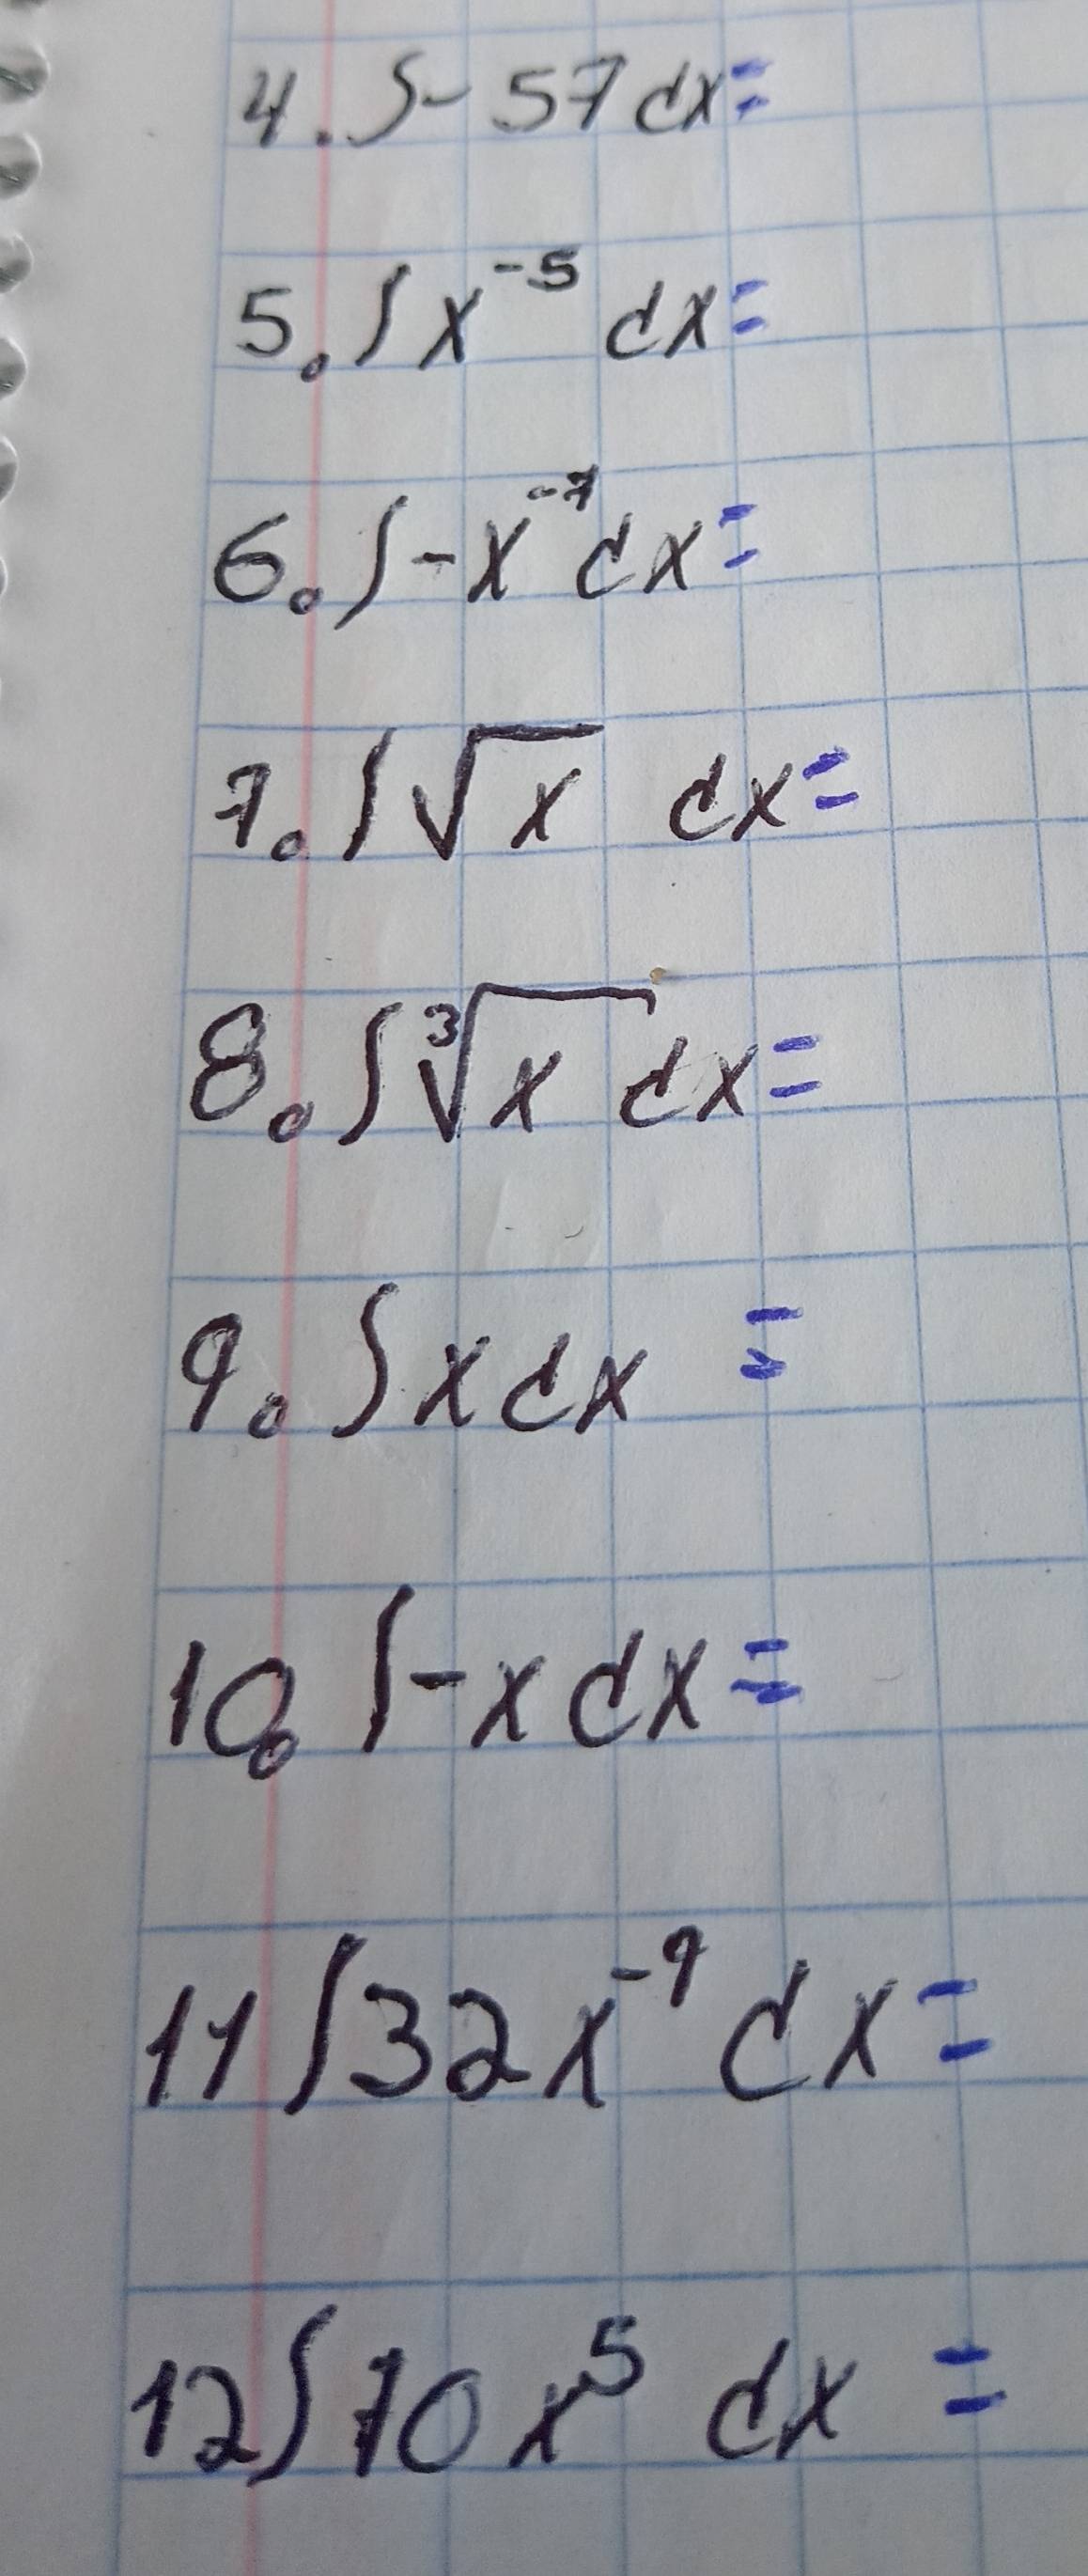 4. ∫ - 57 dx =
5. ∫ x⁻⁵ dx =
6. ∫ - x⁻⁷ dx =
7. ∫ √x dx =
8. ∫ ³√x dx =
9. ∫ x dx =
10. ∫ - x dx =
11 ∫ 32 x⁻⁹ dx =
12 ∫ 70 x⁵ dx =